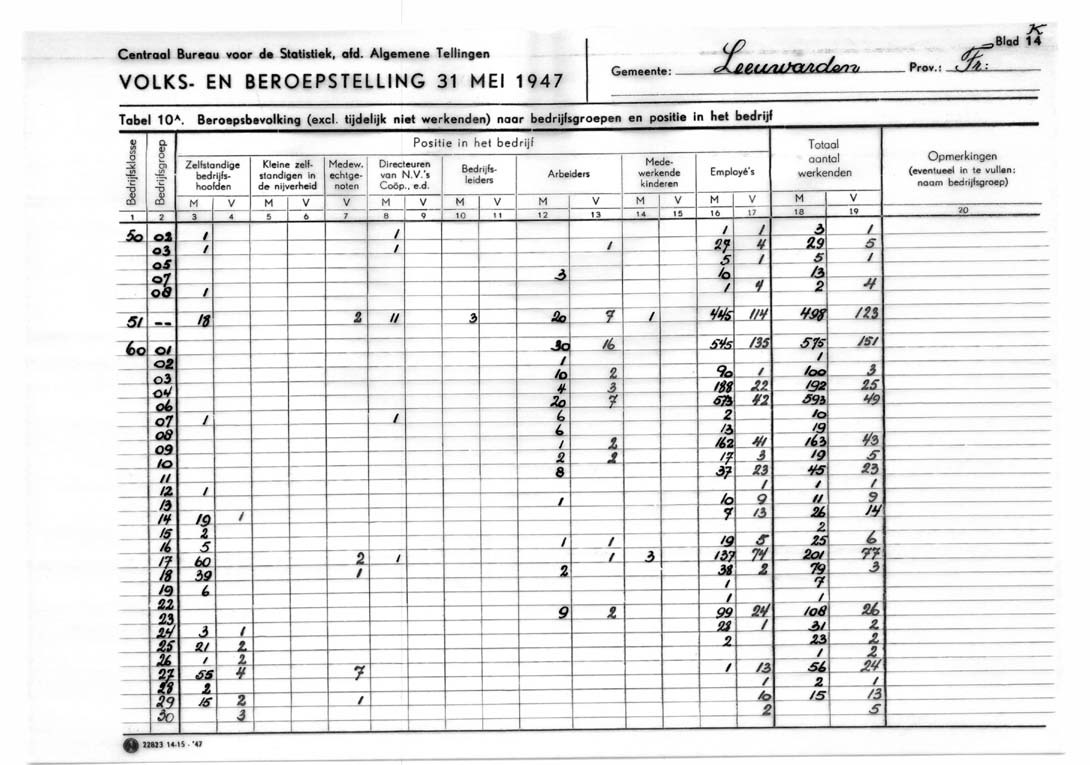 K
Blad 14
Centraal Bureau voor de Statistiek, afd. Algemene Tellingen
VOLKS- EN BEROEPSTELLING 31 MEI 1947
Gemeente: Leeuwarden Prov.: Fr:
Tabel 10A. Beroepsbevolking (excl. tijdelijk niet werkenden) naar bedrijfsgroepen en positie in het bedrijf
Bedrijfsklasse
Bedrijfsgroep
Positie in het bedrijf
Zelfstandige
bedrijfs-
hoofden
Kleine zelf-
standigen in
de nijverheid
Medew.
echtge-
noten
Directeuren
van N.V.'s
Coöp., e.d.
Bedrijfs-
leiders
Arbeiders
Mede-
werkende
kinderen
Employé's
Totaal
aantal
werkenden
Opmerkingen
(eventueel in te vullen:
naam bedrijfsgroep)
M V M V V M V M V M V M V M V M V
1 2 3 4 5 6 7 8 9 10 11 12 13 14 15 16 17 18 19 20
50 02 1 1 1 1 3 1
03 1 1 1 27 4 29 5
05 5 1 5 1
07 3 10 13
08 1 1 4 2 4
51 -- 18 2 11 3 20 7 1 445 114 498 123
60 01 30 16 545 135 575 151
02 1 1
03 10 2 90 1 100 3
04 4 3 188 22 192 25
06 20 7 573 42 593 49
07 1 1 6 2 10
08 6 13 19
09 1 2 162 41 163 43
10 2 2 17 3 19 5
11 8 37 23 45 23
12 1 1 1 1
13 1 10 9 11 9
14 19 1 7 13 26 14
15 2 2
16 5 1 1 19 5 25 6
17 60 2 1 1 3 137 74 201 77
18 39 1 2 38 2 79 3
19 6 1 7
22 1 1
23 9 2 99 24 108 26
24 3 1 28 1 31 2
25 21 2 2 23 2
26 1 2 1 2
27 55 4 7 1 13 56 24
28 2 1 2 1
29 15 2 1 10 15 13
30 3 2 5
22823 14-15 - '47